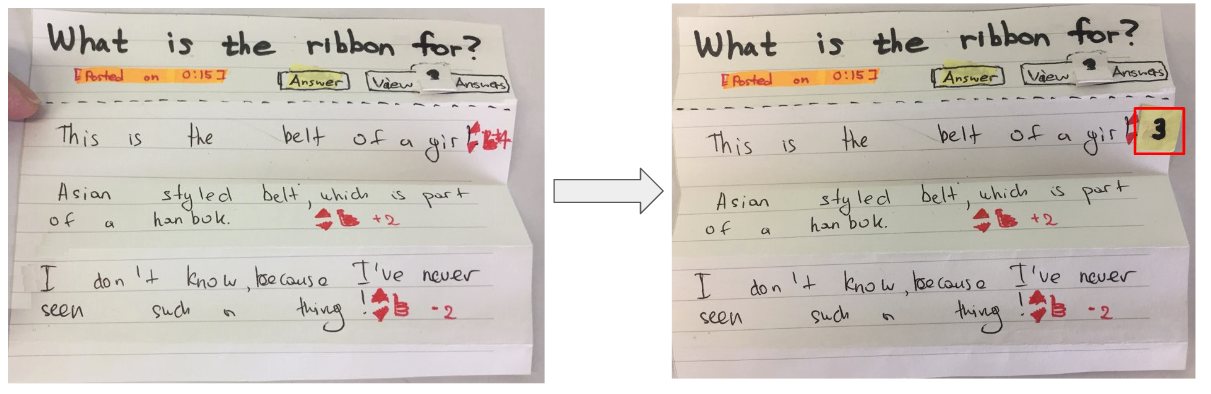 What is the ribbon for?
[Posted on 0:15]
Answer
View ? Answers
This is the belt of a girl +4
Asian styled belt, which is part
of a hanbok. +2
I don't know, because I've never
seen such a thing! -2
What is the ribbon for?
[Posted on 0:15]
Answer
View ? Answers
This is the belt of a girl 3
Asian styled belt, which is part
of a hanbok. +2
I don't know, because I've never
seen such a thing! -2